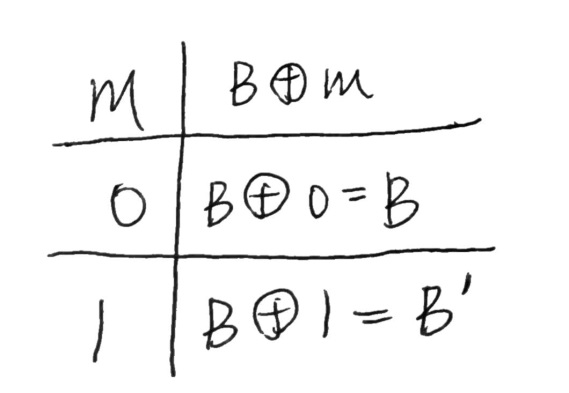 M B⊕m
0 B⊕0=B
1 B⊕1=B'